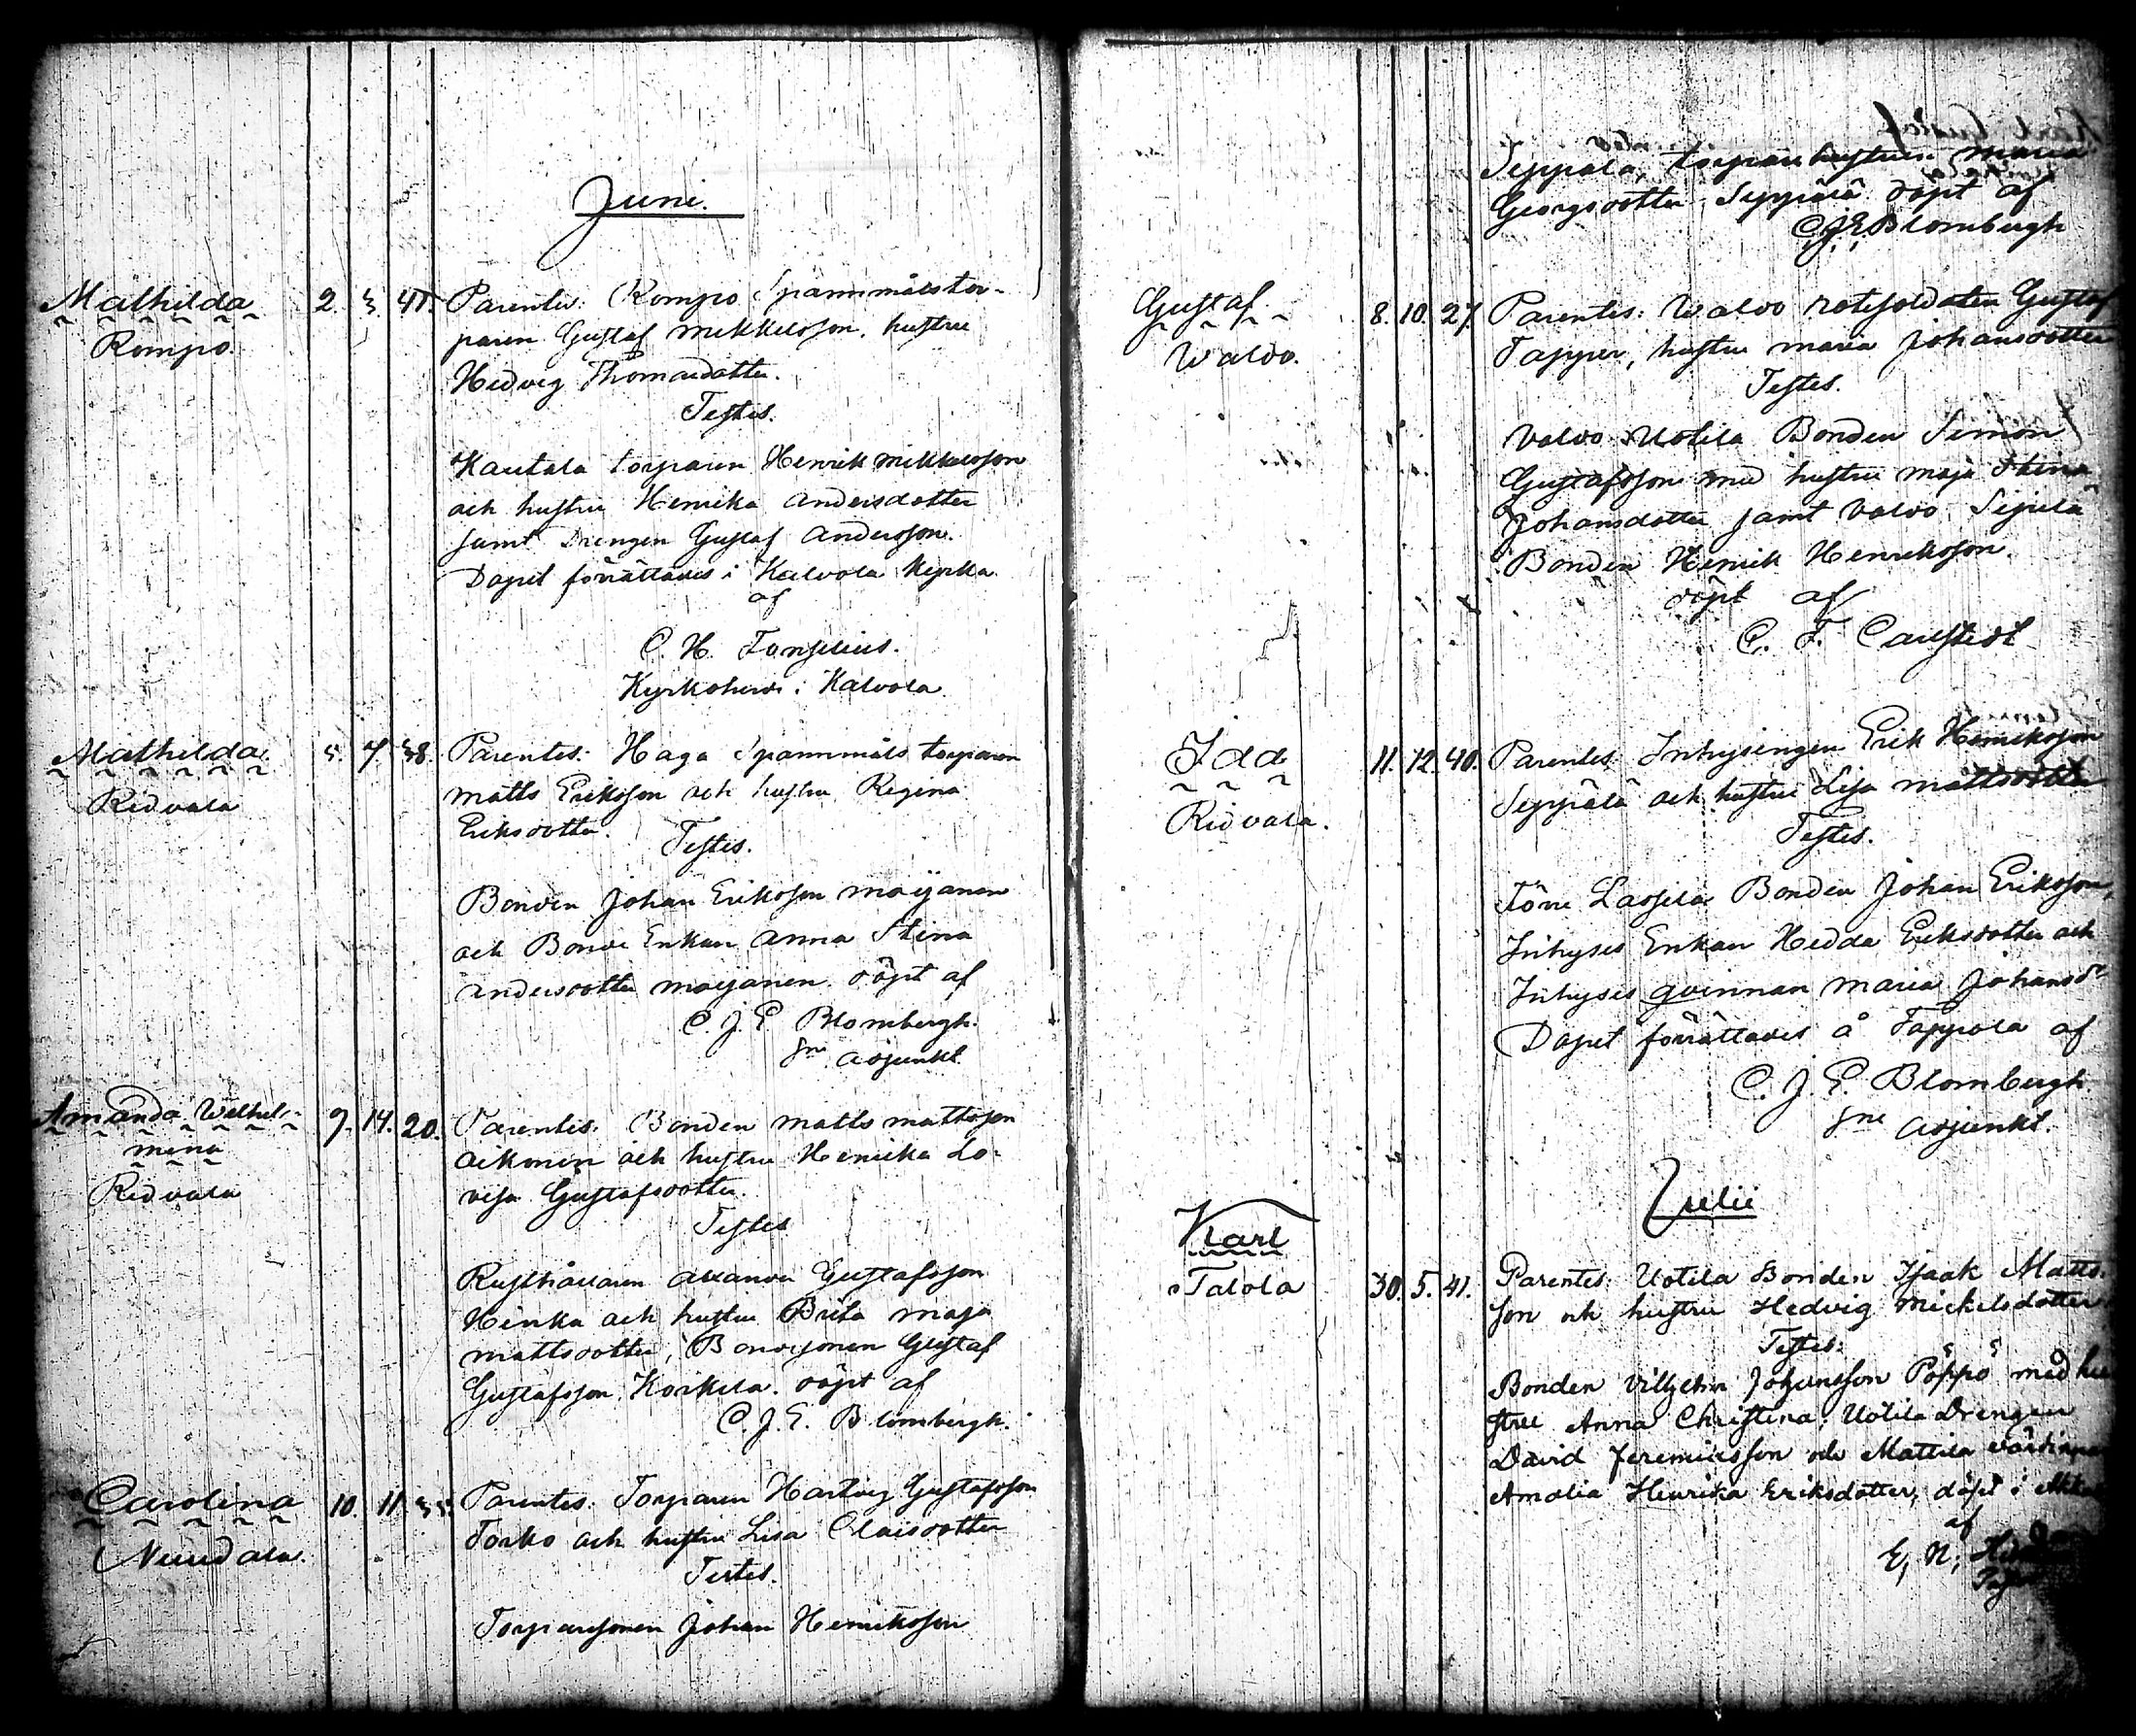 Juni.
Mathilda
Rompo.
2. 3. 41.
Parentes: Rompo Spannmålstor-
paren Gustaf Mikkelsson, hustru
Hedvig Thomasdotter.
Testes.
Kautala torparen Henrik Mikkelsson
och hustru Henrika Andersdotter
samt Drengen Gustaf Andersson.
Dopet förrättades i Kalvola Kyrka
af
C. H.
Kyrkoherde i Kalvola.
Mathilda
Ridvala
5. 7. 38.
Parentes: Haga Spannmåls torparen
Matts Eriksson och hustru Regina
Eriksdotter.
Testes.
Bonden Johan Eriksson Maijanen
och Bonde Enkan Anna Stina
Andersdotter Maijanen. döpt af
C. J. E Blombergh.
Sne adjunkt
Amanda Wilhel-
mina
Ridvala
9. 14. 20.
Parentes: Bonden Matts Mattsson
Aikonen och hustru Henrika Lo-
visa Gustafsdotter.
Testes
Rusthållaren Alexander Gustafsson
Heinka och hustru Brita Maja
Mattsdotter, Bondsonen Gustaf
Gustafsson Korkela. döpt af
C. J. E. Blombergh.
Carolina
Nuudala.
10. 11. 35.
Parentes: Torparen Hartvig Gustafsson
Torko och hustru Lisa Claisdotter
Testes.
Torparesonen Johan Henriksson
Seppälä, torpare hustrun Maria
Georgsdotter Seppälä döpt af
C. J. E. Blombergh
Gustaf
Waldo.
8. 10. 27.
Parentes: Waldo rotesoldaten Gustaf
Tapper, hustru Maria Johansdotter
Testes.
Valdo Uotila Bonden Simon
Gustafsson med hustru Maja Stina
Johansdotter samt Valdo Sipilä
Bonden Henrik Henriksson.
döpt af
C. F. Carlstedt
Ida
Ridvala.
11. 12. 40.
Parentes: Inhysingen Erik Henriksson
Seppälä och hustru Lisa Mattsdotter
Testes.
Töre Lassila Bonden Johan Eriksson,
Inhyses Enkan Hedda Eriksdotter och
Inhyses qvinnan Maria Johansdr
Dopet förrättades å Tappola af
C. J. E. Blombergh.
Sne Adjunkt.
Julii
Karl
Talola
30. 5. 41.
Parentes: Uotila Bonden Isaak Matts-
son och hustru Hedvig Mickelsdotter
Testes:
Bonden Vilhelm Johansson Pöppö med hu
stru Anna Christina; Uotila Drengen
David Jeremiasson och Mattila värdinnan
Amalia Henrika Eriksdotter, döpt i
af
E, N,